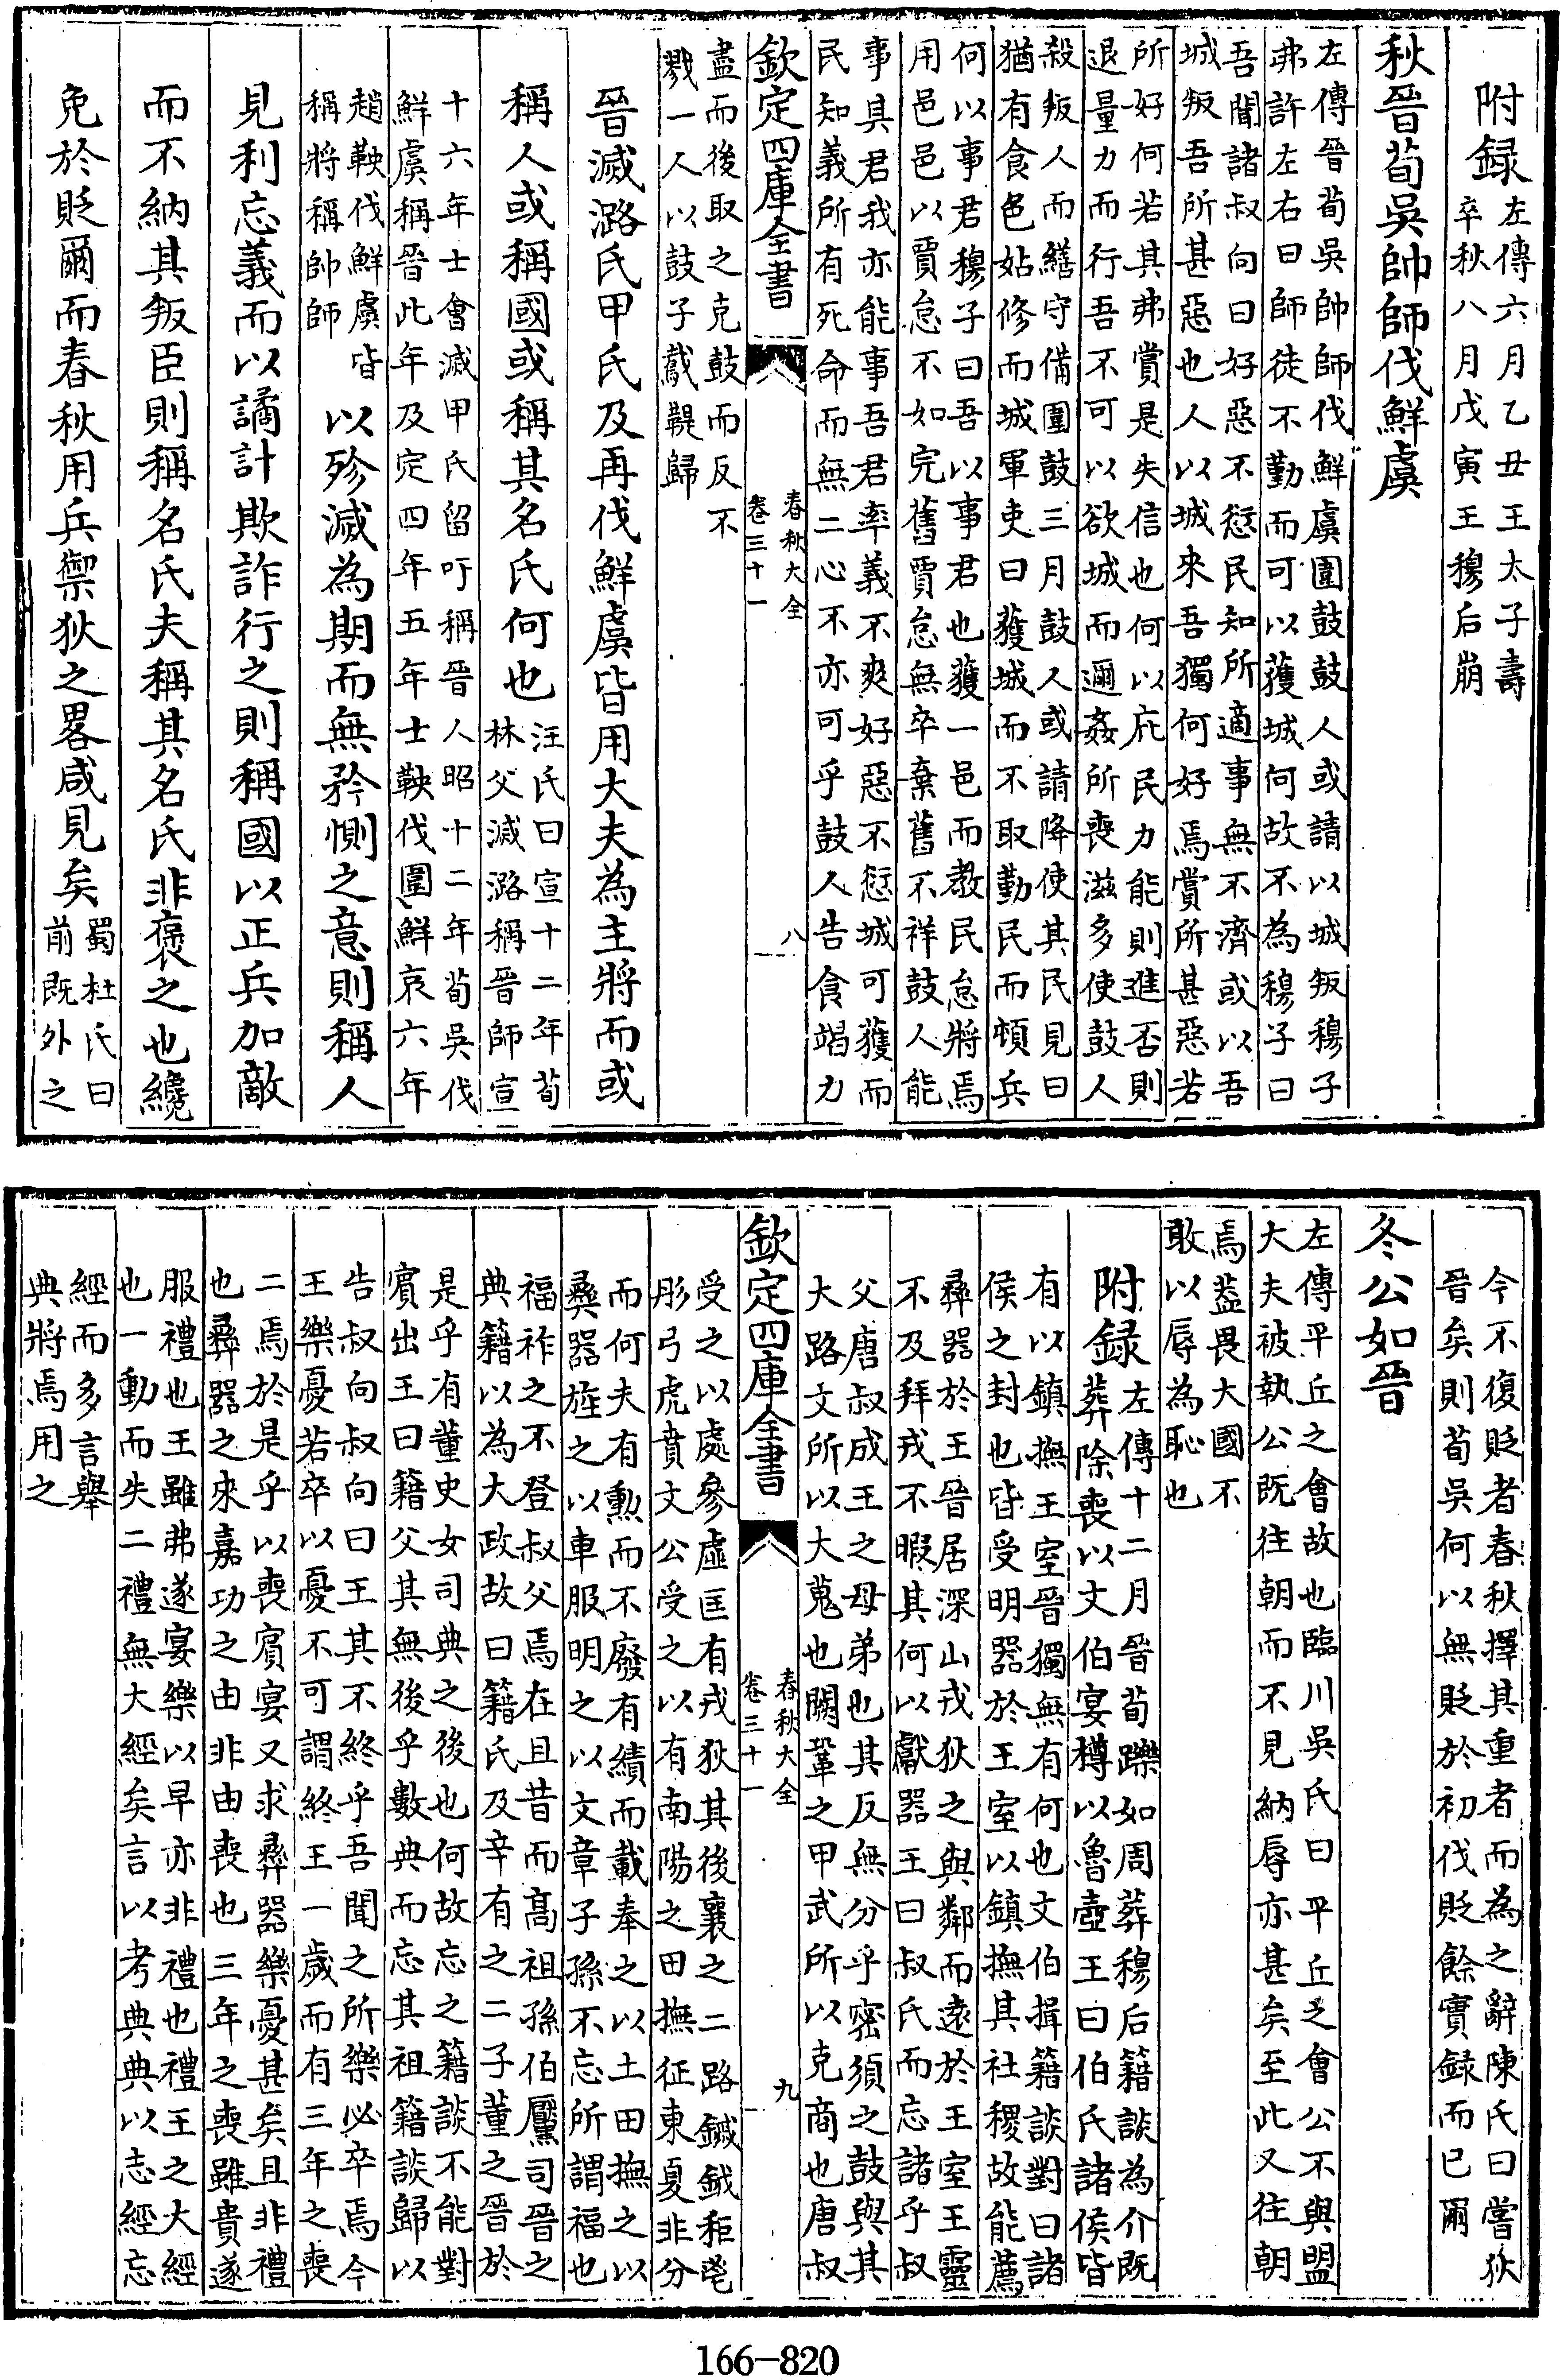 附録左傳六月乙丑王太子壽
卒秋八月戊寅王穆后崩
秋晉荀吳帥師伐鮮虞
左傳晉荀吳帥師伐鮮虞圍鼓鼓人或請以城叛穆子
弗許左右曰師徒不勤而可以獲城何故不為穆子曰
吾聞諸叔向曰好惡不愆民知所適事無不濟或以吾
城叛吾所甚惡也人以城來吾獨何好焉賞所甚惡若
所好何若其弗賞是失信也何以庇民力能則進否則
退量力而行吾不可以欲城而邇姦所喪滋多使鼓人
殺叛人而繕守備圍鼓三月鼓人或請降使其民見曰
猶有食色姑修而城軍吏曰獲城而不取勤民而頓兵
何以事君穆子曰吾以事君也獲一邑而教民怠將焉
用邑邑以賈怠不如完舊賈怠無卒棄舊不祥鼓人能
事其君我亦能事吾君率義不爽好惡不愆城可獲而
民知義所有死命而無二心不亦可乎鼓人告食竭力
欽定四庫全書
春秋大全
卷三十一
八
盡而後取之克鼓而反不
戮一人以鼓子䳒鞮歸
晉滅潞氏甲氏及再伐鮮虞皆用大夫為主將而或
稱人或稱國或稱其名氏何也汪氏曰宣十二年荀
林父滅潞稱晉師宣
十六年士會滅甲氏留吁稱晉人昭十二年荀吳伐
鮮虞稱晉此年及定四年五年士鞅伐圍鮮哀六年
趙鞅伐鮮虞皆
稱將稱帥師
以殄滅為期而無矜惻之意則稱人
見利忘義而以譎計欺詐行之則稱國以正兵加敵
而不納其叛臣則稱名氏夫稱其名氏非褒之也纔
免於貶爾而春秋用兵禦狄之畧咸見矣蜀杜氏曰
前既外之
今不復貶者春秋擇其重者而為之辭陳氏曰嘗狄
晉矣則荀吳何以無貶於初伐貶餘實録而已爾
冬公如晉
左傳平丘之會故也臨川吳氏曰平丘之會公不與盟
大夫被執公既往朝而不見納辱亦甚矣至此又往朝
焉葢畏大國不
敢以辱為恥也
附録左傳十二月晉荀躒如周葬穆后籍談為介既
葬除喪以文伯宴樽以魯壺王曰伯氏諸侯皆
有以鎮撫王室晉獨無有何也文伯揖籍談對曰諸
侯之封也皆受明器於王室以鎮撫其社稷故能薦
彝器於王晉居深山戎狄之與鄰而遠於王室王靈
不及拜戎不暇其何以獻器王曰叔氏而忘諸乎叔
父唐叔成王之母弟也其反無分乎密須之鼓與其
大路文所以大蒐也闕鞏之甲武所以克商也唐叔
欽定四庫全書
春秋大全
卷三十一
九
受之以處參虛匡有戎狄其後襄之二路鏚鉞秬鬯
彤弓虎賁文公受之以有南陽之田撫征東夏非分
而何夫有勲而不廢有績而載奉之以土田撫之以
彝器旌之以車服明之以文章子孫不忘所謂福也
福祚之不登叔父焉在且昔而高祖孫伯黶司晉之
典籍以為大政故曰籍氏及辛有之二子董之晉於
是乎有董史女司典之後也何故忘之籍談不能對
賓出王曰籍父其無後乎數典而忘其祖籍談歸以
告叔向叔向曰王其不終乎吾聞之所樂必卒焉今
王樂憂若卒以憂不可謂終王一歲而有三年之喪
二焉於是乎以喪賓宴又求彝器樂憂甚矣且非禮
也彝器之來嘉功之由非由喪也三年之喪雖貴遂
服禮也王雖弗遂宴樂以早亦非禮也禮王之大經
也一動而失二禮無大經矣言以考典典以志經忘
經而多言舉
典將焉用之
166-820